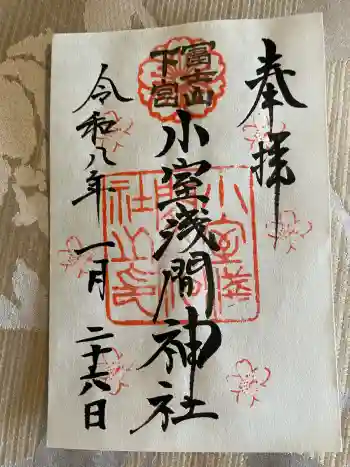 奉拝
冨士山
下宮
小室浅間神社
小室浅
間神
社之印
令和八年一月二十六日